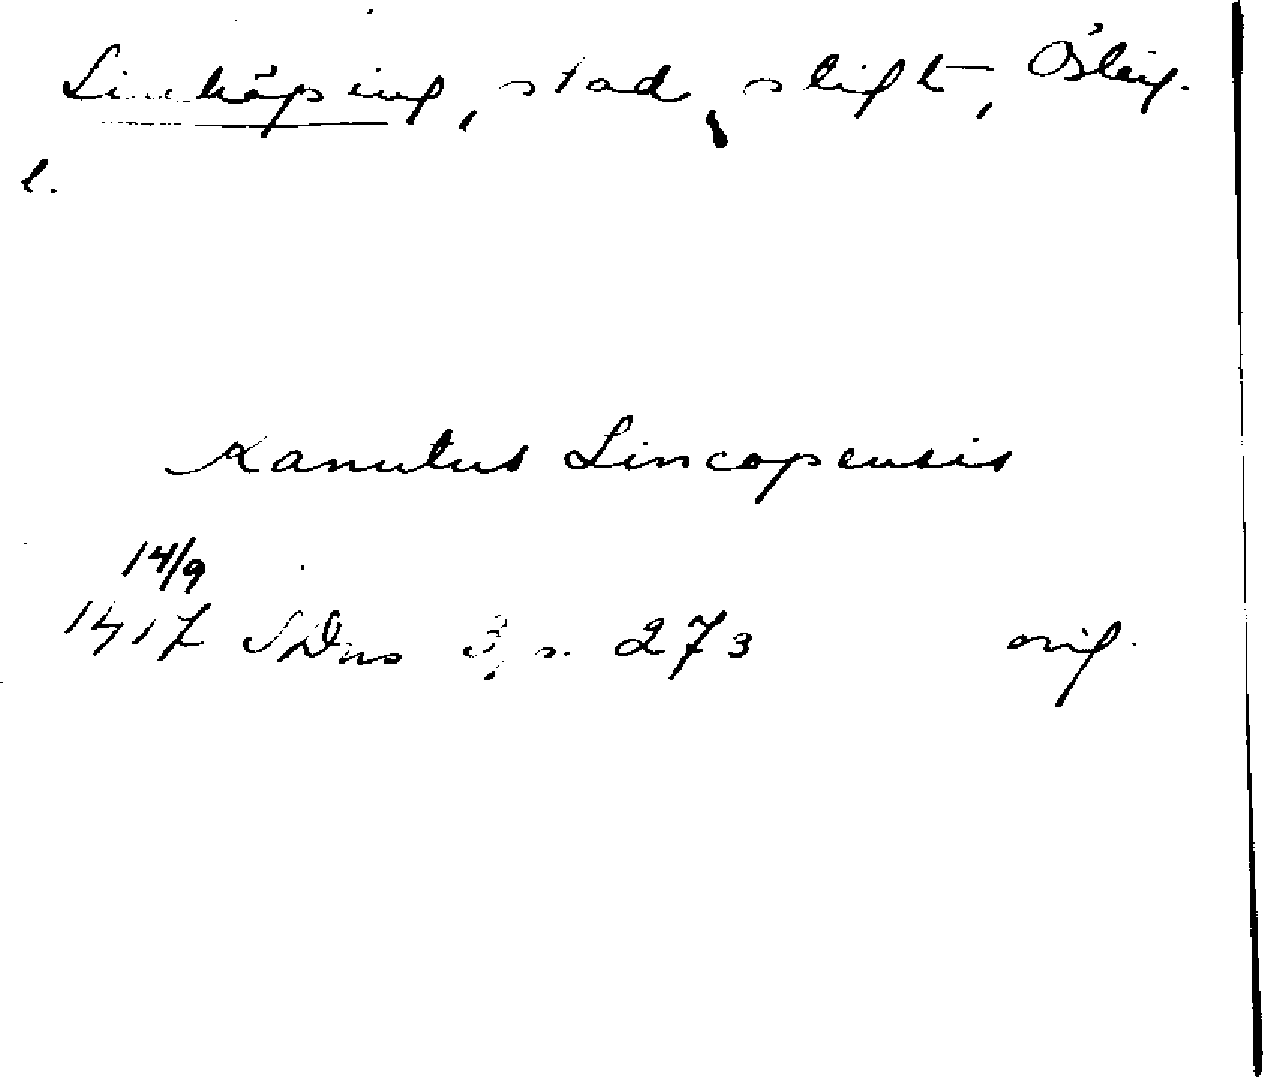 Linköping, stad, stift, Östeig.
l.
Kanutus Lincopensis
14/9
1417 SDns 3, s. 273 orig.